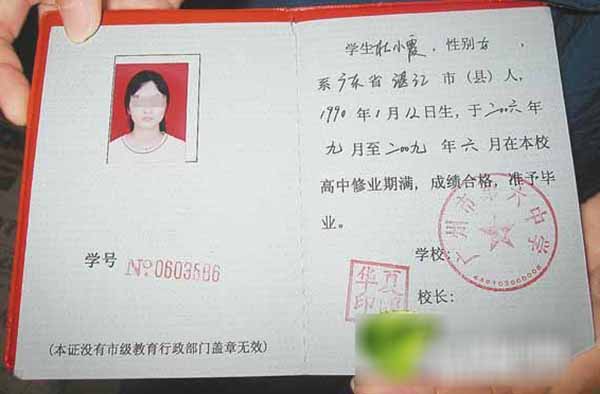 学号 №0603586
(本证没有市级教育行政部门盖章无效)
学生杜小霞,性别女,
系广东省湛江市(县)人,
1990年1月12日生,于二〇〇六年
九月至二〇〇九年六月在本校
高中修业期满,成绩合格,准予毕
业。
学校:
广州市第六中学
校长:
华夏
印